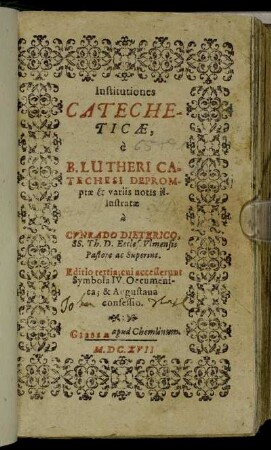 Institutiones
CATECHE-
TICÆ,
è
B. LUTHERI CA-
TECHESI DEPROM-
ptæ & variis notis il-
lustratæ
à
CVNRADO DIETERICO,
SS. Th. D. Eccles. Vlmensis
Pastore ac Superint.
Editio tertia; cui accesserunt
Symbola IV. Oecumeni-
ca; & Augustana
confessio.
Giessæ apud Chemlinum.
M.DC.XVII